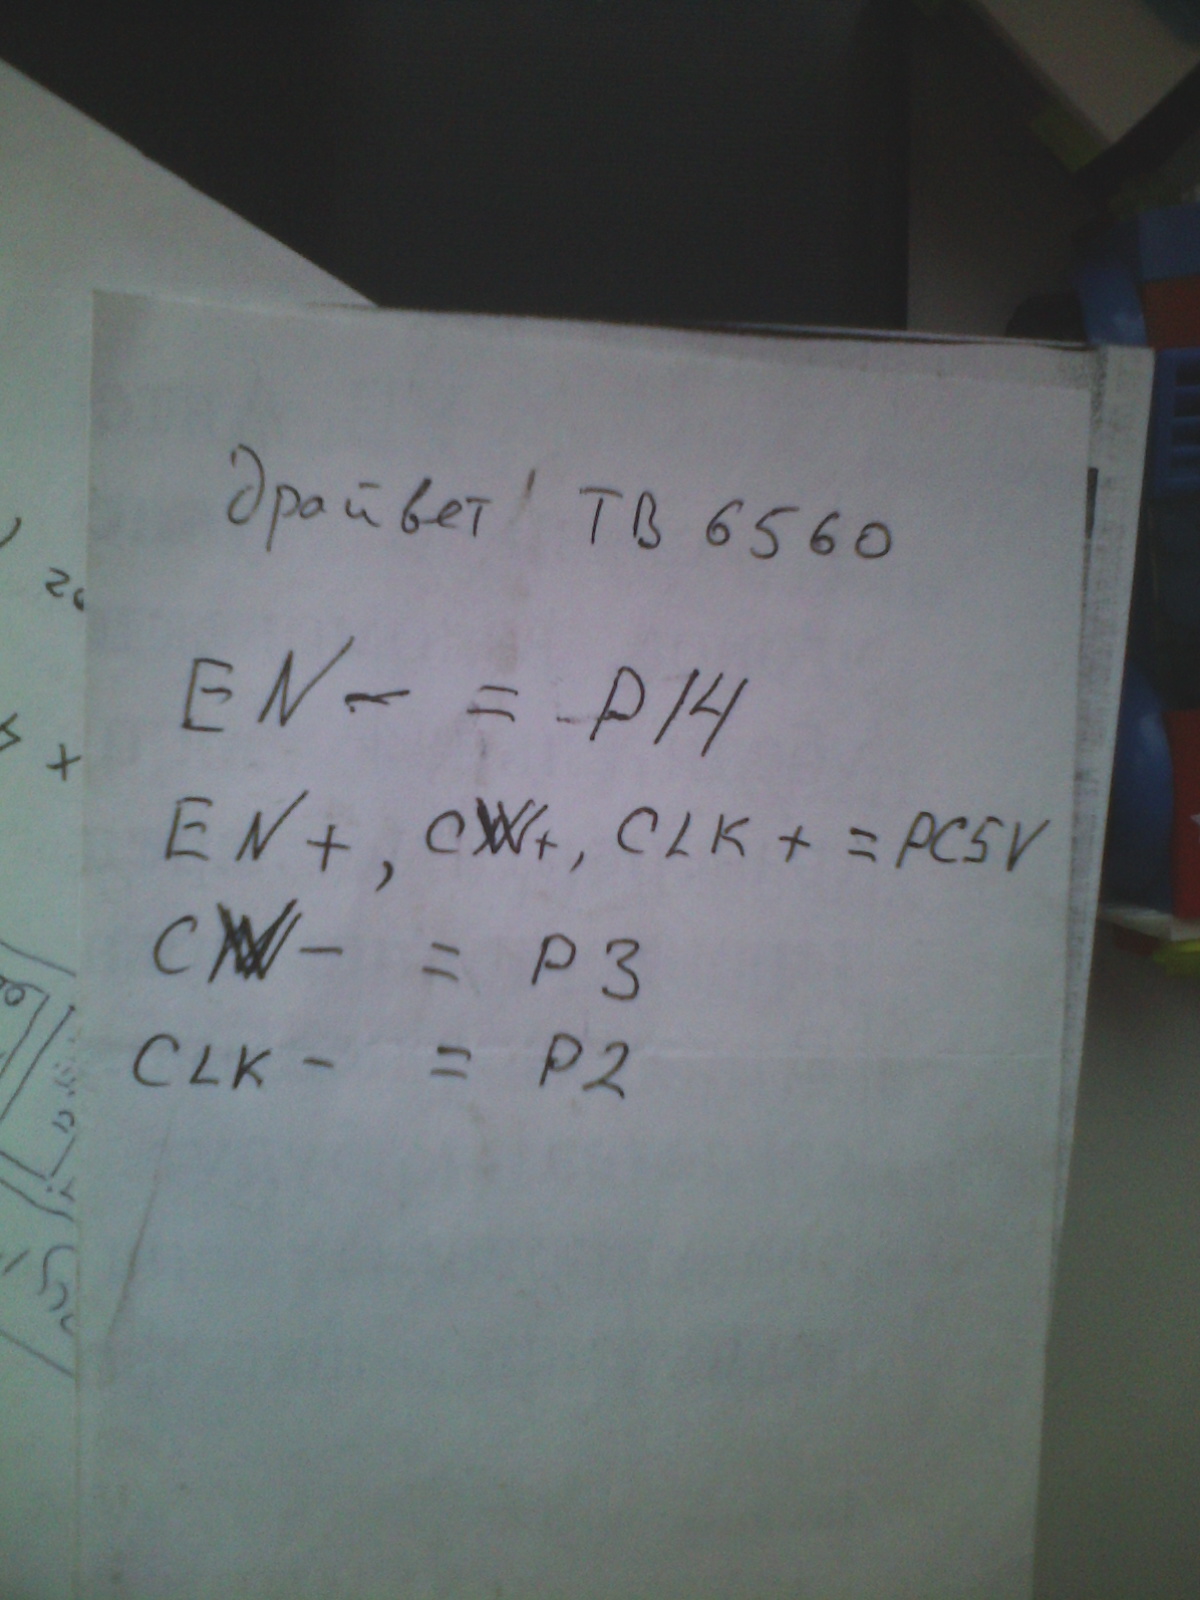 Драйвет! ТВ 6560
EN - = P14
EN +, CW+, CLK + = PC5V
CW - = P3
CLK - = P2